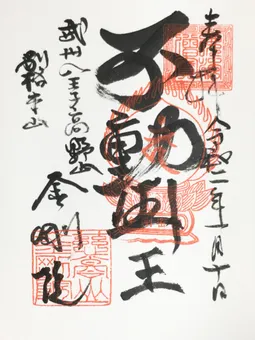 奉拝 令和二年一月十日
不動明王
武州八王子高野山
金剛院
別格本山